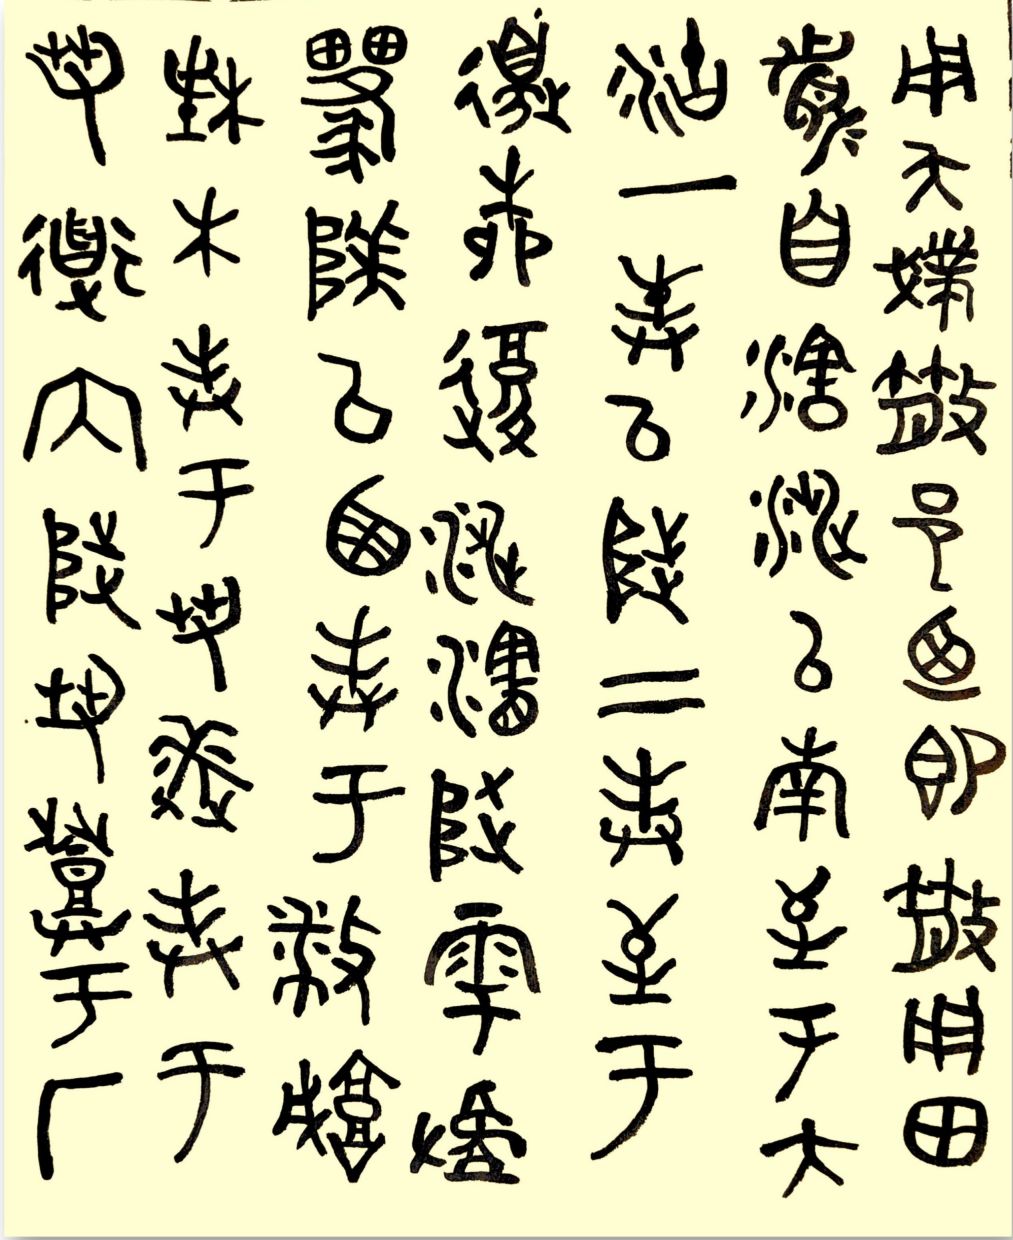 用夨䙷散邑迺即散用田
眉自瀗涉以南至于大
沽一奉以陟二奉至于
邊柳復涉瀗陟雩
以西奉于播城
楮木奉于芻逨奉于
芻道內陟芻登于厂